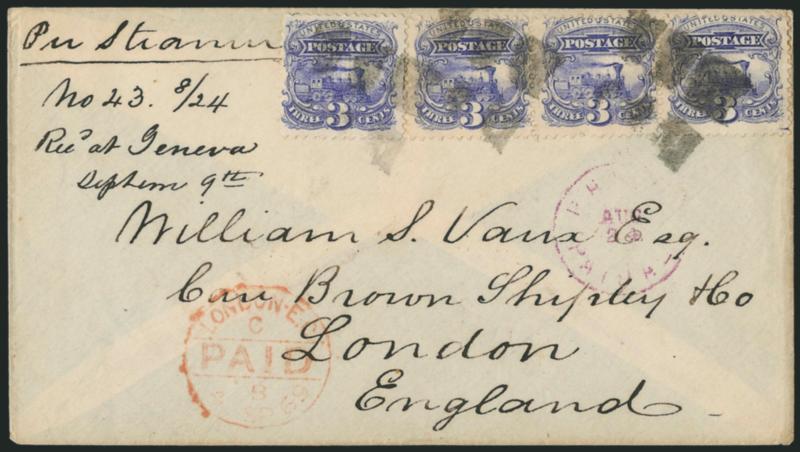 Per Steamer
UNITED STATES POSTAGE THREE 3 CENTS
UNITED STATES POSTAGE THREE 3 CENTS
UNITED STATES POSTAGE THREE 3 CENTS
UNITED STATES POSTAGE THREE 3 CENTS
No 43. 8/24
Rec'd at Geneva
Septem 9th
William S. Vaux Esq.
Care Brown Shipley & Co
London
England
AUG
LONDON-E.C
C
PAID
8
SP 69